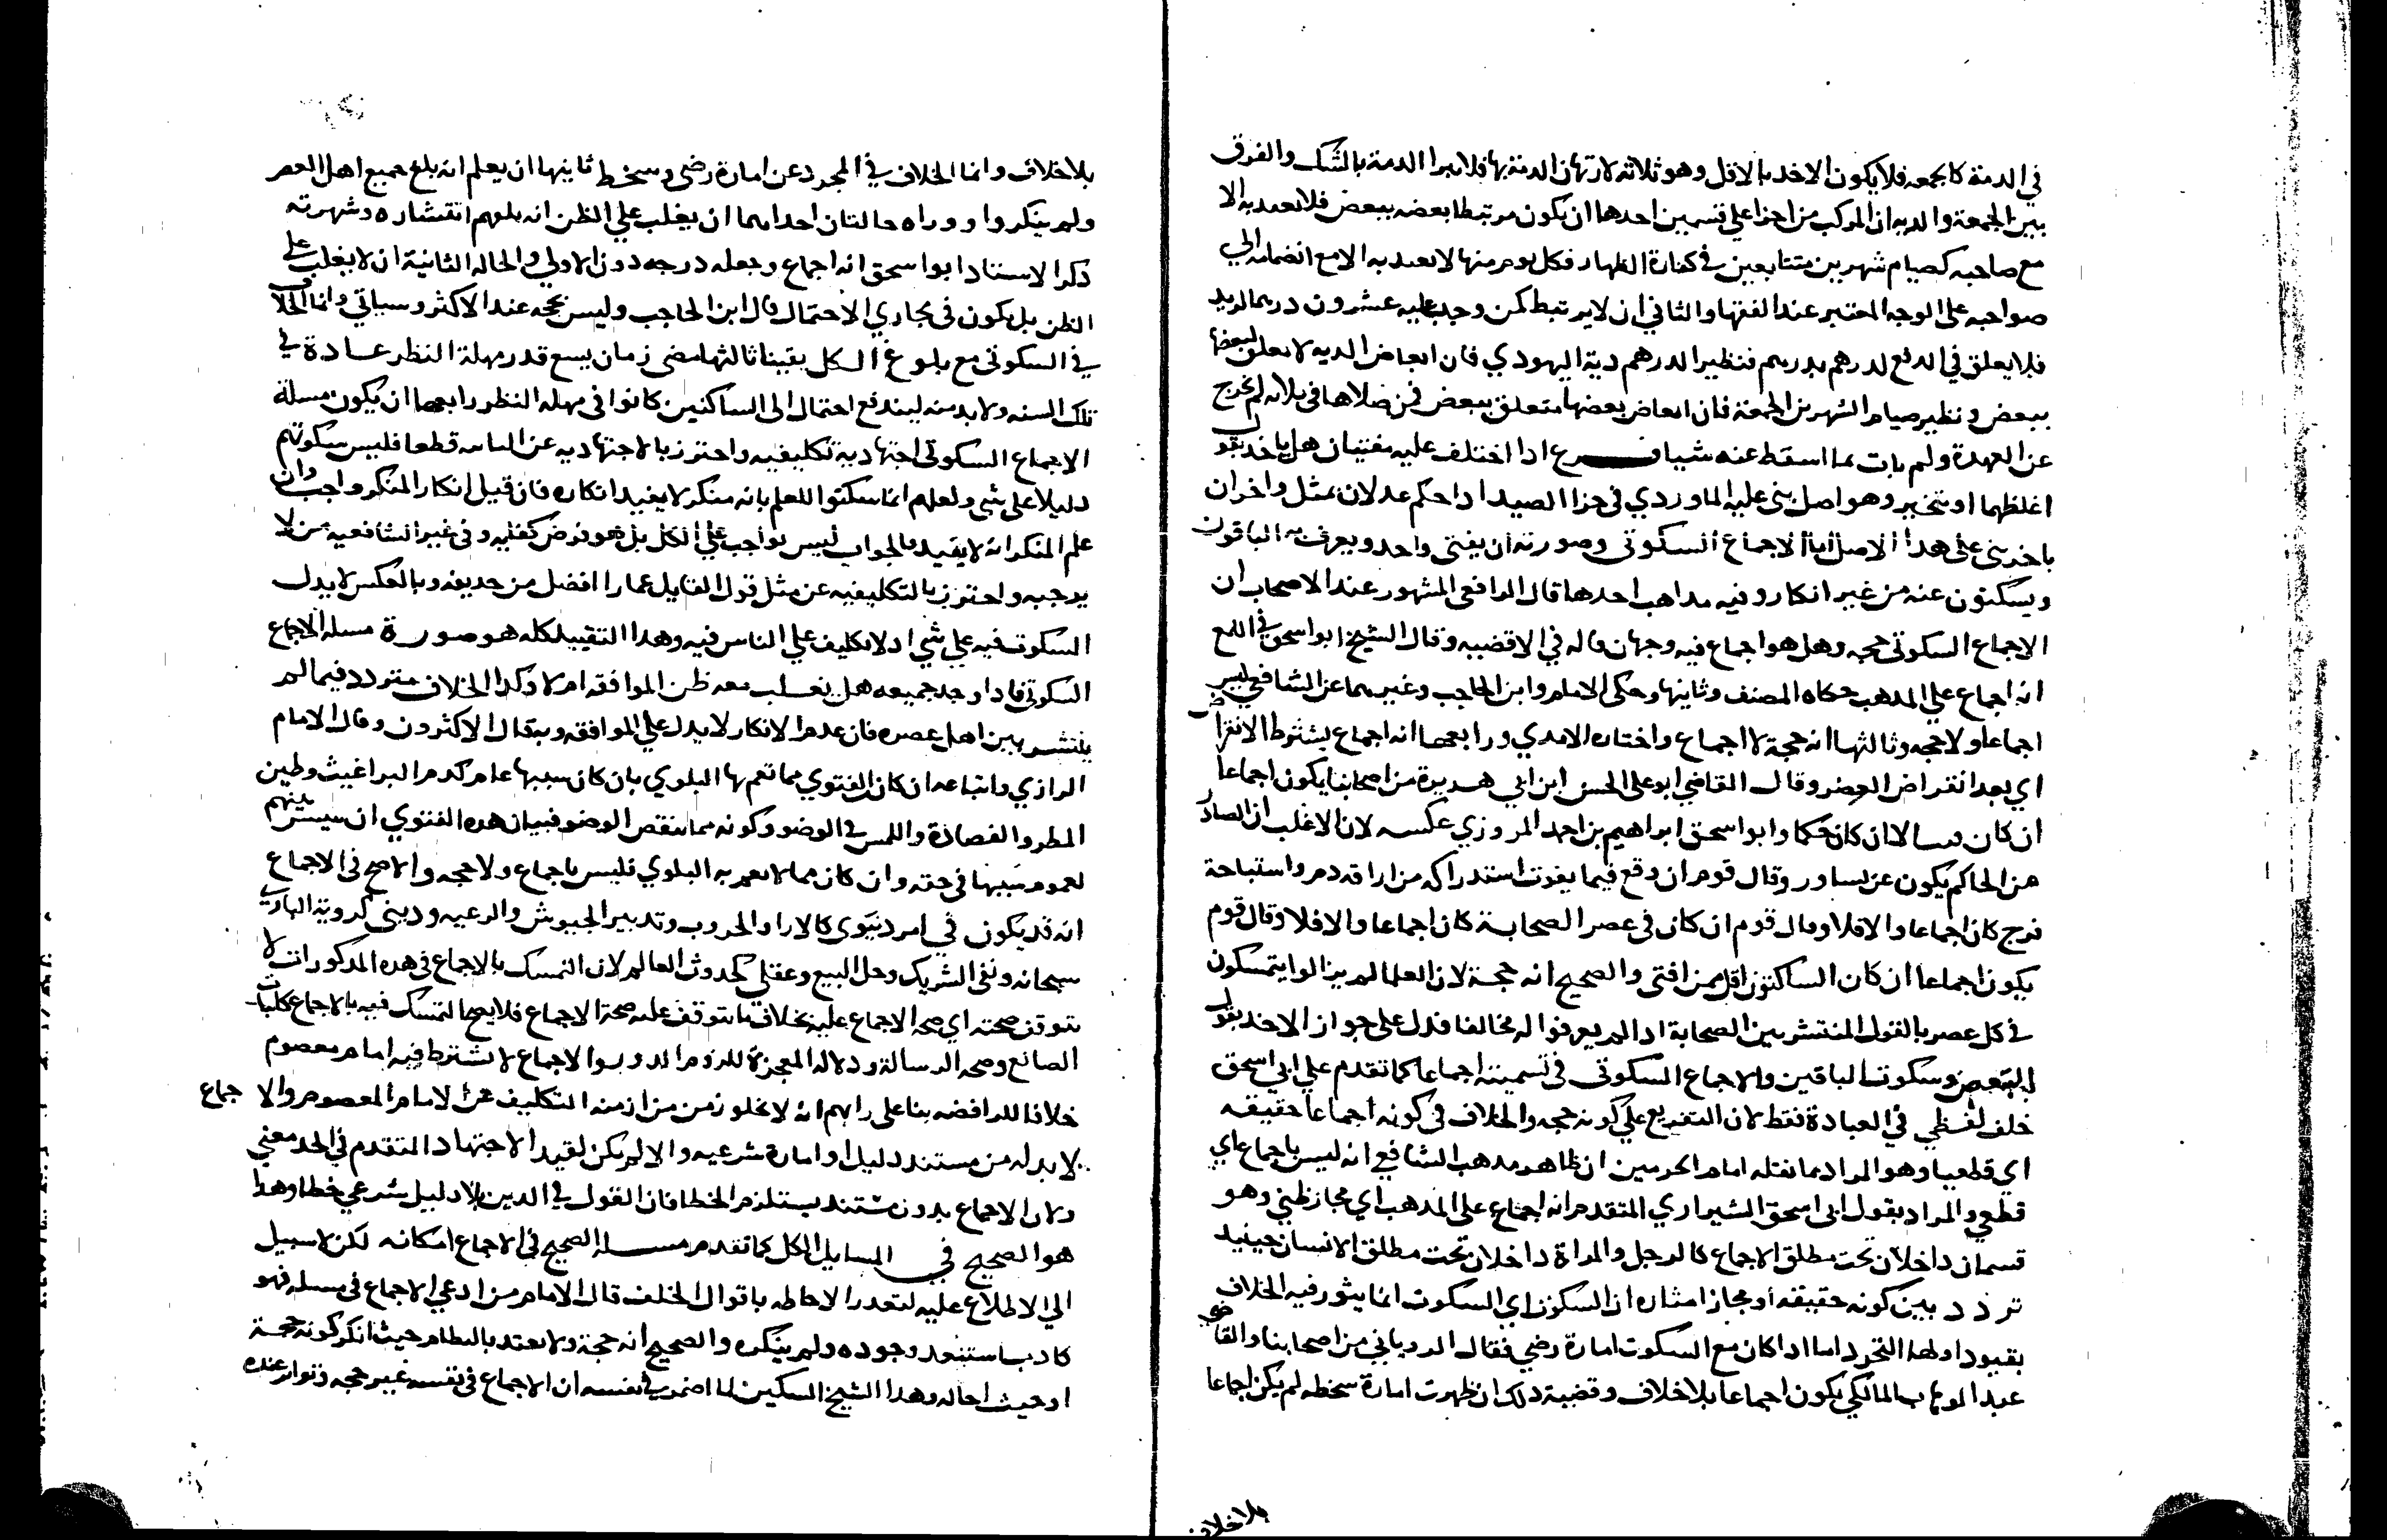 في الدمة كالجمعه فلا يكون الاخد بالاقل وهو ثلاثه لارتهان الدمة بها فلا يبرا الدمة بالشك والفرق
بين الجمعة والديه ان المركب من اجزا علي قسمين احدهما ان يكون مرتبطا بعضه ببعض فلا يعتد به الا
مع صاحبه كصيام شهرين متتابعين في كفارة الظهار فكل يوم منها لا يعتد به الا مع انضمامه الي
صواحبه علي الوجه المعتبر عند الفقها والثاني ان لا يرتبط كمن وجد عليه عشرون درهما لزيد
فلا يعلق في الدفع لدرهم بدرهم فنظير الدرهم دية اليهودي فان ابعاض الديه لا يعلق لبعضها
ببعض ونظير صيام الشهرين الجمعة فان ابعاض بعضها متعلق ببعض فمن صلاها في بلاته لم يخرج
عن العهدة ولم يات بما اسقط عنه شيا فرع ادا اختلف عليه مفتيان هل ياخد بقول
اغلظهما او يتخير وهو اصل بني عليه الماوردي في جزا الصيد ادا حكم عدلان بمثل واخران
باخر بني علي هدا الاصل اما الاجماع السكوتي وصورته ان يفتي واحد ويعرف به الباقون
ويسكتون عنه من غير انكار وفيه مداهب احدها قال الرافعي المشهور عند الاصحاب ان
الاجماع السكوتي حجه وهل هو اجماع فيه وجهان قاله في الاقضيه وقال الشيخ ابو اسحق في اللمع
انه اجماع علي المدهب حكاه المصنف وثانيها وحكي الامام وابن الحاجب وغيرهما عن الشافعي ليس
اجماعا ولا حجه وثالثها انه حجة لا اجماع واختاره الامدي ورابعها انه اجماع بشرط الانقراض
اي بعد انقراض العصر وقال القاضي ابو علي الحسن ابن ابي هريرة من اصحابنا يكون اجماعا
ان كان فتيا لا ان كان حكما وابو اسحق ابراهيم بن احمد المروزي عكسه لان الاغلب ان الصادر
من الحاكم يكون عن تساور وقال قوم ان وقع فيما يفوت استدراكه من اراقه دم واستباحة
فرج كان اجماعا والا فلا وقال قوم ان كان في عصر الصحابة كان اجماعا والا فلا وقال قوم
يكون اجماعا ان كان الساكتون اقل ممن افتي والصحيح انه حجة لان العلما لم يزالوا يتمسكون
في كل عصر بالقول المنتشر بين الصحابة ادا لم يعرفوا له مخالفا فدل علي جواز الاخد بقول
البعض وسكوت الباقين والاجماع السكوتي في تسميته اجماعا كما تقدم علي ابي اسحق
خلف لفظي في العبادة فقط لان التفريع علي كونه حجه والخلاف في كونه اجماعا حقيقه
اي قطعيا وهو المراد بما نقله امام الحرمين ان ظاهر مدهب الشافعي انه ليس باجماع اي
قطعي والمراد بقول ابي اسحق الشيرازي المتقدم انه اجماع علي المدهب اي مجاز ظني وهو
قسمان داخلان تحت مطلق الاجماع كالرجل والمراة داخلان تحت مطلق الانسان حينيد
تردد بين كونه حقيقه او مجاز امثاره ان السكوت اي السكوت انما يثور فيه الخلاف
بقيود اولها التجرد اما ادا كان مع السكوت امارة رضي فقال الروياني من اصحابنا والقاضي
عبد الوهاب المالكي يكون اجماعا بلا خلاف وقضية دلك ان ظهرت امارة سخطه لم يكن اجماعا
بلا خلاف
بلا خلاف وانما الخلاف في المجرد عن امارة رضي وسخط ثانيها ان يعلم انه بلغ جميع اهل العصر
ولم ينكروا ووراه حالتان احداهما ان يغلب علي الظن انه بلغهم انتشاره وشهرته
دكر الاستاد ابو اسحق انه اجماع وجعله درجه دون الاولي والحاله الثانية ان لا يغلب علي
الظن بل يكون في مجاري الاحتمال قال ابن الحاجب وليس بحجه عند الاكثر وسياتي وانما الخلاف
في السكوتي مع بلوغ الكل يقينا ثالثها مضي زمان يسع قدر مهلة النظر عادة في
تلك السنه ولا بد منه ليندفع احتمال الي الساكتين كانوا في مهله النظر رابعها ان يكون مسلة
الاجماع السكوتي اجتهادية تكليفيه واحترز بالاجتهاديه عن قطعا فليس سكوتهم
دليلا علي شي ولعلهم انما سكتوا للعلم بانه منكر لا يفيد انكاره فان قيل انكار المنكر واجب وان
علم المنكر انه لا يفيد فالجواب ليس بواجب علي الكل بل هو فرض كفايه وفي غير الشافعيه من لا
يوجبه واحترز بالتكليفيه عن مثل قول القايل عمارا افضل من حديفه وبالعكس لا يدل
السكوت فيه علي شي اد لا تكليف علي الناس فيه وهدا التقييد كله هو صورة مسله الاجماع
السكوتي فادا وجد جميعه هل يغلب معه ظن الموافقه ام لا وكدا الخلاف متردد فيما لم
ينتشر بين اهل عصره فان عدم الانكار لا يدل علي الموافقه وبه قال الاكثرون وقال الامام
الرازي واتباعه ان كان الفتوي مما تعم بها البلوي بان كان سببها عام كدم البراغيث وطين
المطر والفصادة واللمس في الوضو وكونه مما ينقض الوضو فبيان هده الفتوي ان سيشر بينهم
لعموم سببها في حقه وان كان مما لا يعم به البلوي فليس باجماع ولا حجه والاصح في الاجماع
انه قد يكون في امر دنيوي كالارا والحروب وتدبير الجيوش والرعيه وديني كروية الباري
سبحانه ونفي الشريك وحل البيع وعقلي كحدوث العالم لان التمسك بالاجماع في هده المدكورات لا
تتوقف صحته اي صحه الاجماع عليه بخلاف ما تتوقف عليه صحة الاجماع فلا يصح التمسك فيه بالاجماع كاثبات
الصانع وصحه الرسالة ودلاله المعجزة للزوم الدور والاجماع لا يشترط فيه امام معصوم
خلافا للرافضه بنا علي رايهم انه لا يخلو زمن من ازمنه التكليف عن الامام المعصوم والاجماع
لا بد له من مستند دليل او امارة شرعيه والا لم يكن لقيد الاجتهاد المتقدم في الحد معني
ولان الاجماع بدون مستند يستلزم الخطا فان القول في الدين بلا دليل شرعي خطا وهدا
هو الصحيح في المسايل الكل كما تقدم مسلة الصحيح في الاجماع امكانه لكن لا سبيل
الي الاطلاع عليه لتعدر الاحاطه باقوال الخلف قال الامام من ادعي الاجماع في مسله فهو
كادب استبعد وجوده ولم ينكره والصحيح انه حجة ولا يعتد بالنظام حيث انكر كونه حجة
او حيث احاله وهدا الشيخ السكين لما اضمر في نفسه ان الاجماع في نفسه غير حجه وتواتر عنده